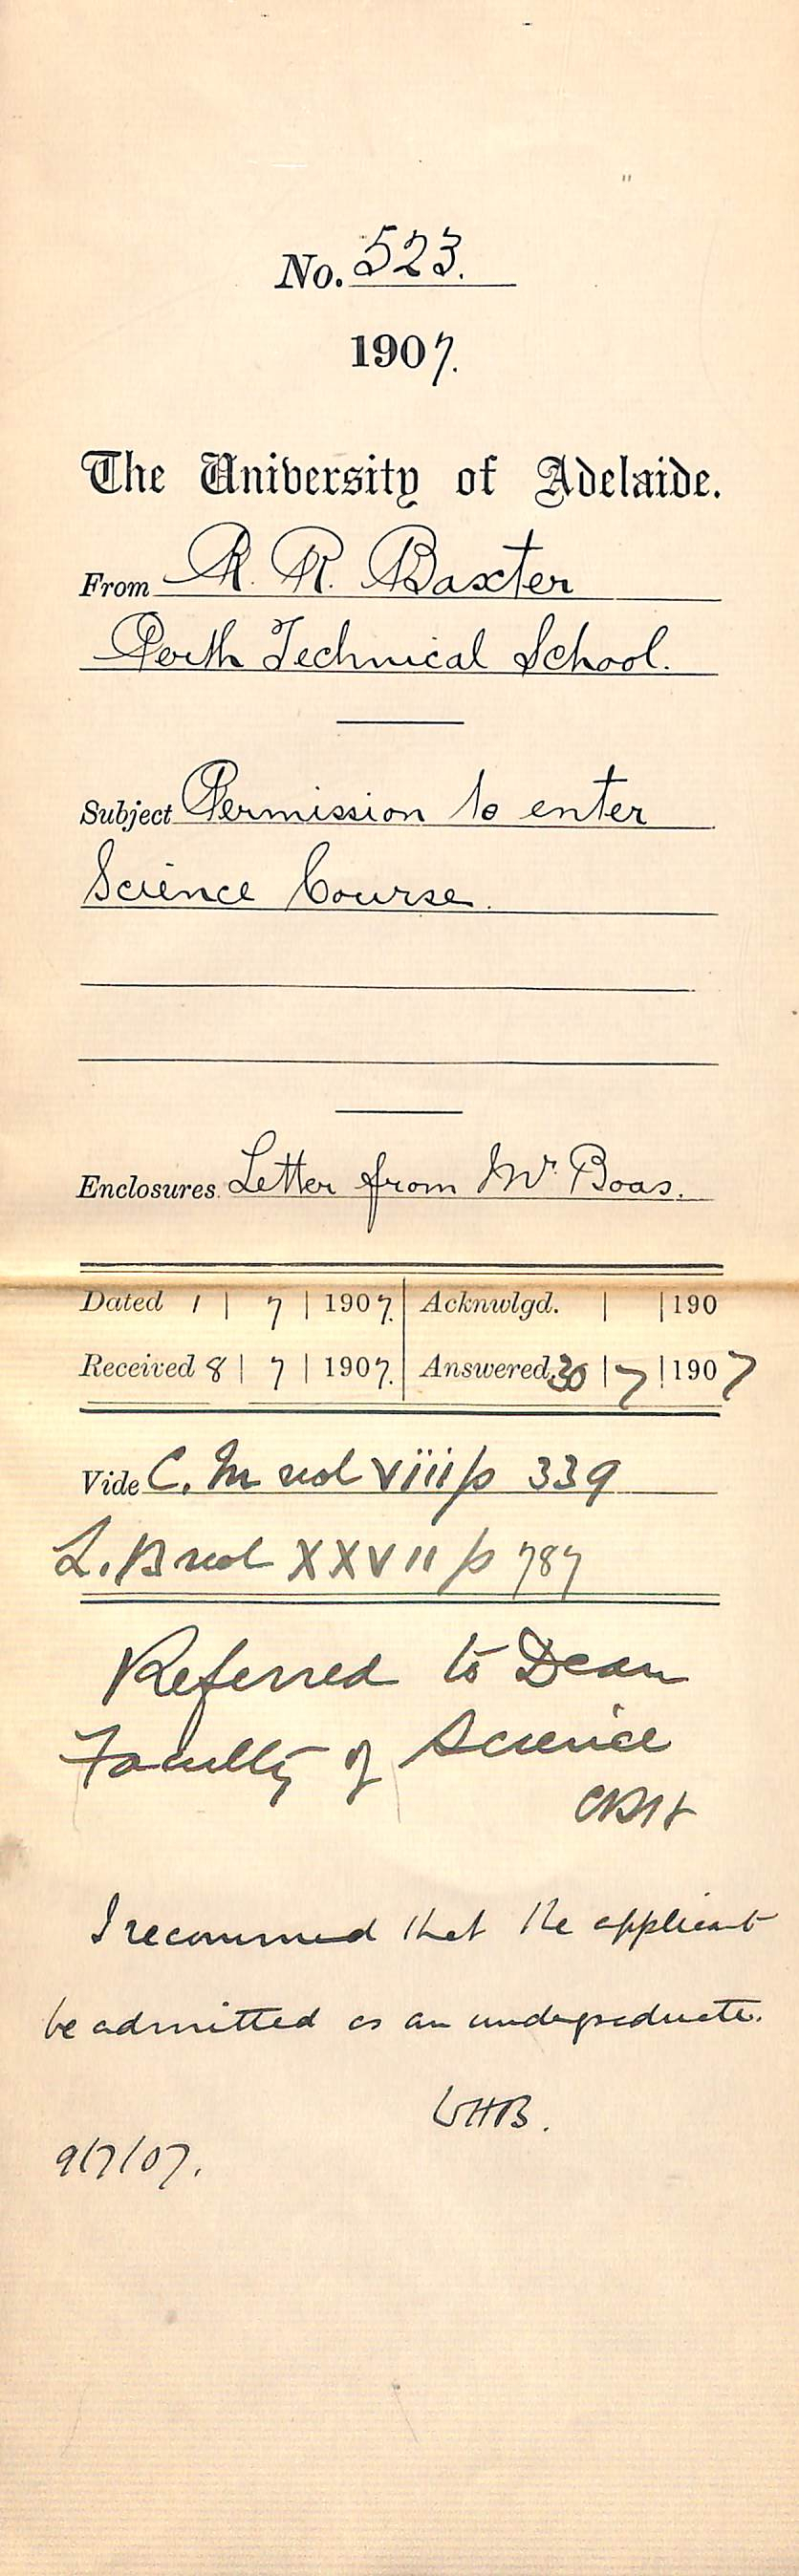 No. 523.
1907.
The University of Adelaide.
From R. R. Baxter
Perth Technical School.
Subject Permission to enter
Science Course.
Enclosures. Letter from Mr Boas.
Dated 1 | 7 | 1907. Acknwlgd. | | 190
Received 8 | 7 | 1907. Answered. 30 | 7 | 1907
Vide C. M vol viii/p 339
L. B vol XXVII/p 787
Referred to Dean
Faculty of Science
I recommend that the applicant
be admitted as an undergraduate.
WHB.
9/7/07.